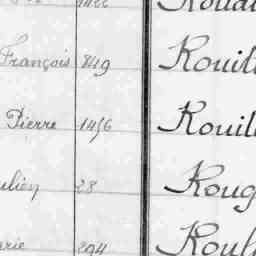 François 849 Rouil
Pierre 1456 Rouil
ulien 28 Roug
arie 294 Roul